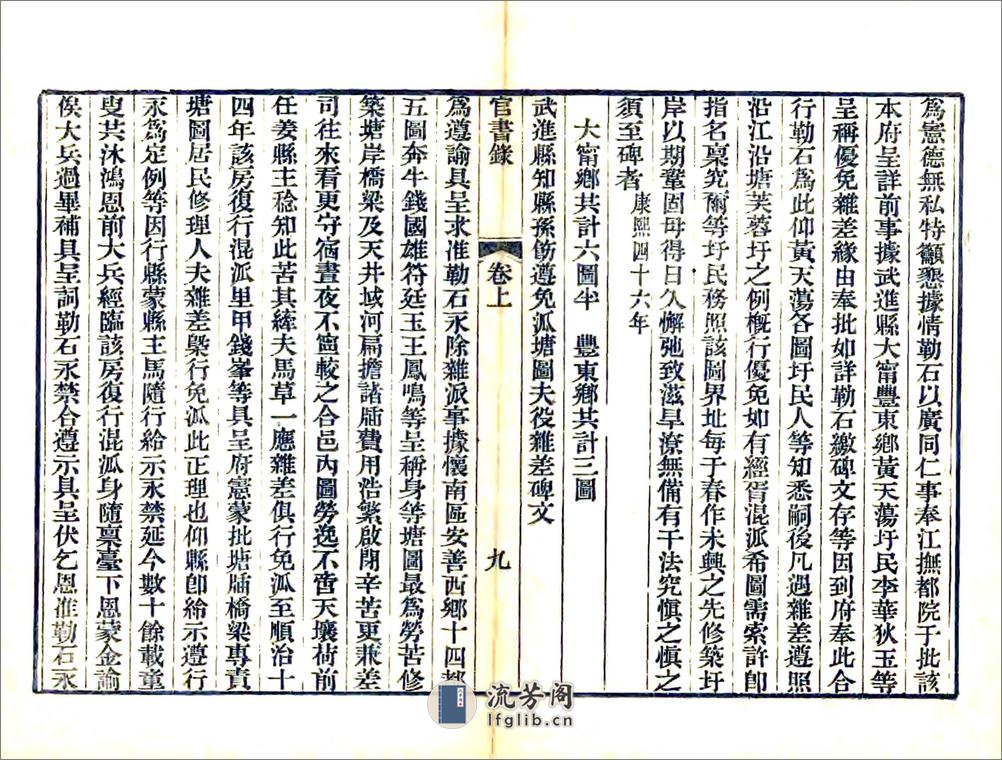 為憲德無私特籲懇據情勒石以廣同仁事奉江撫都院于批該
本府呈詳前事據武進縣大甯豐東鄉黃天蕩圩民李華狄玉等
呈稱優免雜差緣由奉批如詳勒石繳碑文存等因到府奉此合
行勒石爲此仰黃天蕩各圖圩民人等知悉嗣後凡遇雜差遵照
沿江沿塘芙蓉圩之例概行優免如有經胥混派希圖需索許卽
指名稟究爾等圩民務照該圖界址每于春作未興之先修築圩
岸以期鞏固毋得日久懈弛致滋旱潦無備有干法究愼之愼之
須至碑者 康熙四十六年
大甯鄉共計六圖半 豐東鄉共計三圖
武進縣知縣孫飭遵免派塘圖夫役雜差碑文
官書錄 卷上 九
爲遵諭具呈求准勒石永除雜派事據懷南區安善西鄉十四都
五圖奔牛錢國雄符廷玉王鳳鳴等呈稱身等塘圖最爲勞苦修
築塘岸橋梁及天井域河扁擔諸牐費用浩繁啟閉辛苦更兼差
司往來看更守宿晝夜不寧較之合邑內圖勞逸不啻天壤荷前
任姜縣主稔知此苦其縴夫馬草一應雜差俱行免派至順治十
四年該房復行混派里甲錢峯等具呈府憲蒙批塘牐橋梁專責
塘圖居民修理人夫雜差槩行免派此正理也仰縣卽給示遵行
永為定例等因行縣蒙縣主馬隨行給示永禁延今數十餘載童
叟共沐鴻恩前大兵經臨該房復行混派身隨稟臺下恩蒙金諭
俟大兵過畢補具呈詞勒石永禁合遵示具呈伏乞恩准勒石永
流芳阁
lfglib.cn